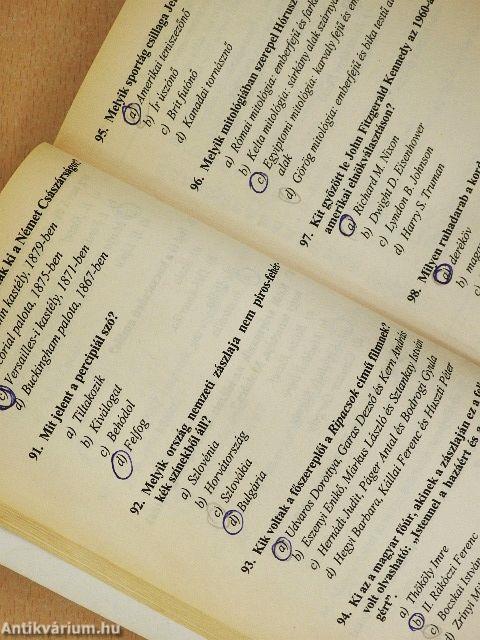 ak ki a Német Császárságot
kastély, 1879-ben
palota, 1875-ben
c) Versailles-i kastély, 1871-ben
d) Buckingham palota, 1867-ben
91. Mit jelent a percipiál szó?
a) Tiltakozik
b) Kiválogat
c) Behódol
d) Felfog
92. Melyik ország nemzeti zászlaja nem piros-fehér-
kék színekből áll?
a) Szlovénia
b) Horvátország
c) Szlovákia
d) Bulgária
93. Kik voltak a főszereplői a Ripacsok című filmnek?
a) Udvaros Dorottya, Garas Dezső és Kern András
b) Eszenyi Enikő, Márkus László és Sztankay István
c) Hernádi Judit, Páger Antal és Bodrogi Gyula
d) Hegyi Barbara, Kállai Ferenc és Huszti Péter
94. Ki az a magyar főúr, akinek a zászlaján ez a fel
volt olvasható: „Istennel a hazáért és a
ért".
a) Thököly Imre
b) II. Rákóczi Ferenc
c) Bocskai István
Zrínyi
95. Melyik sportág csillaga Je
a) Amerikai teniszezőnő
b) Ír úszónő
c) Brit futónő
d) Kanadai tornásznő
96. Melyik mitológiában szerepel Hórusz
a) Római mitológia: emberfejű és fark
b) Kelta mitológia: sárkány alak szárnya
c) Egyiptomi mitológia: karvaly fejű és em
alak
d) Görög mitológia: emberfejű és bika testű a
97. Kit győzött le John Fitzgerald Kennedy az 1960-a
amerikai elnökválasztáson?
a) Richard M. Nixon
b) Dwight D. Eisenhower
c) Lyndon B. Johnson
d) Harry S. Truman
98. Milyen ruhadarab a kord
a) deréköv
b) magas
c)
Antikvárium.hu